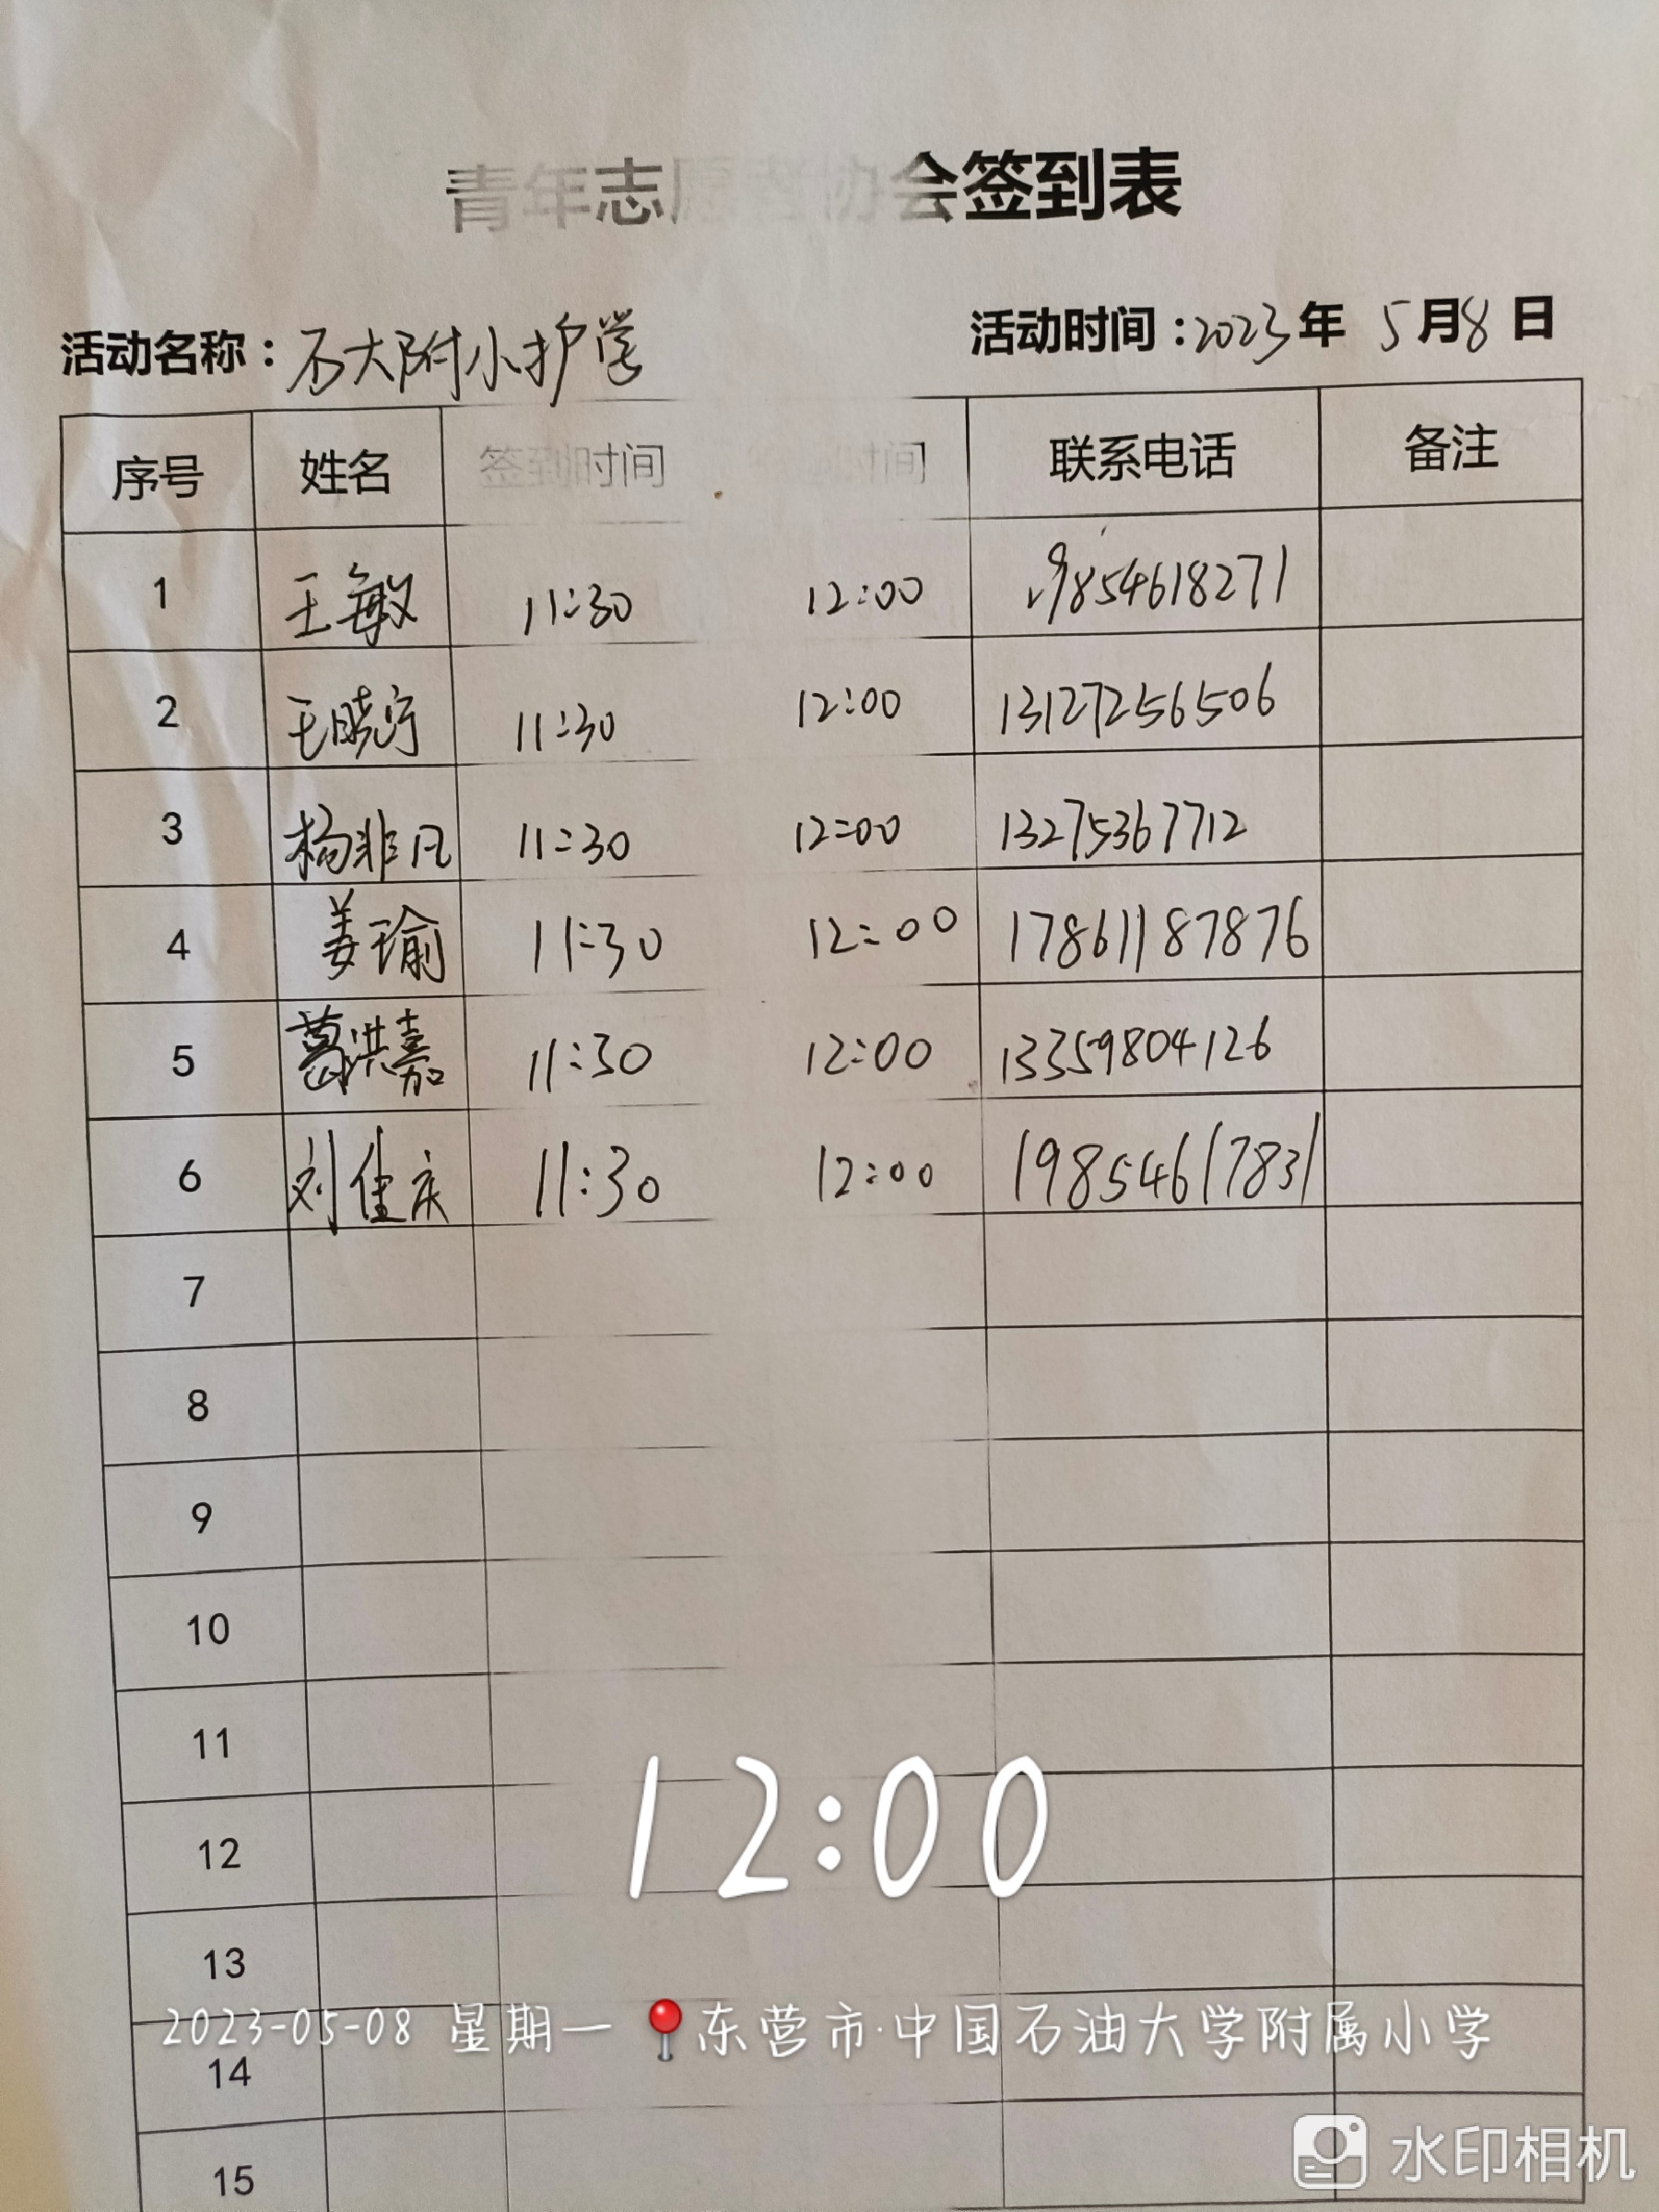 青年志愿者协会签到表
活动名称：石大附小护学 活动时间：2023年 5月8日
序号 姓名 签到时间 时间 联系电话 备注
1 王敏 11:30 12:00 19854618271
2 王晓宇 11:30 12:00 13127256506
3 杨非凡 11:30 12:00 13275367712
4 姜瑜 11:30 12:00 17861187876
5 葛洪嘉 11:30 12:00 13359804126
6 刘佳庆 11:30 12:00 19854617831
7
8
9
10
11
12:00
12
13
2023-05-08 星期一 东营市·中国石油大学附属小学
14
水印相机
15